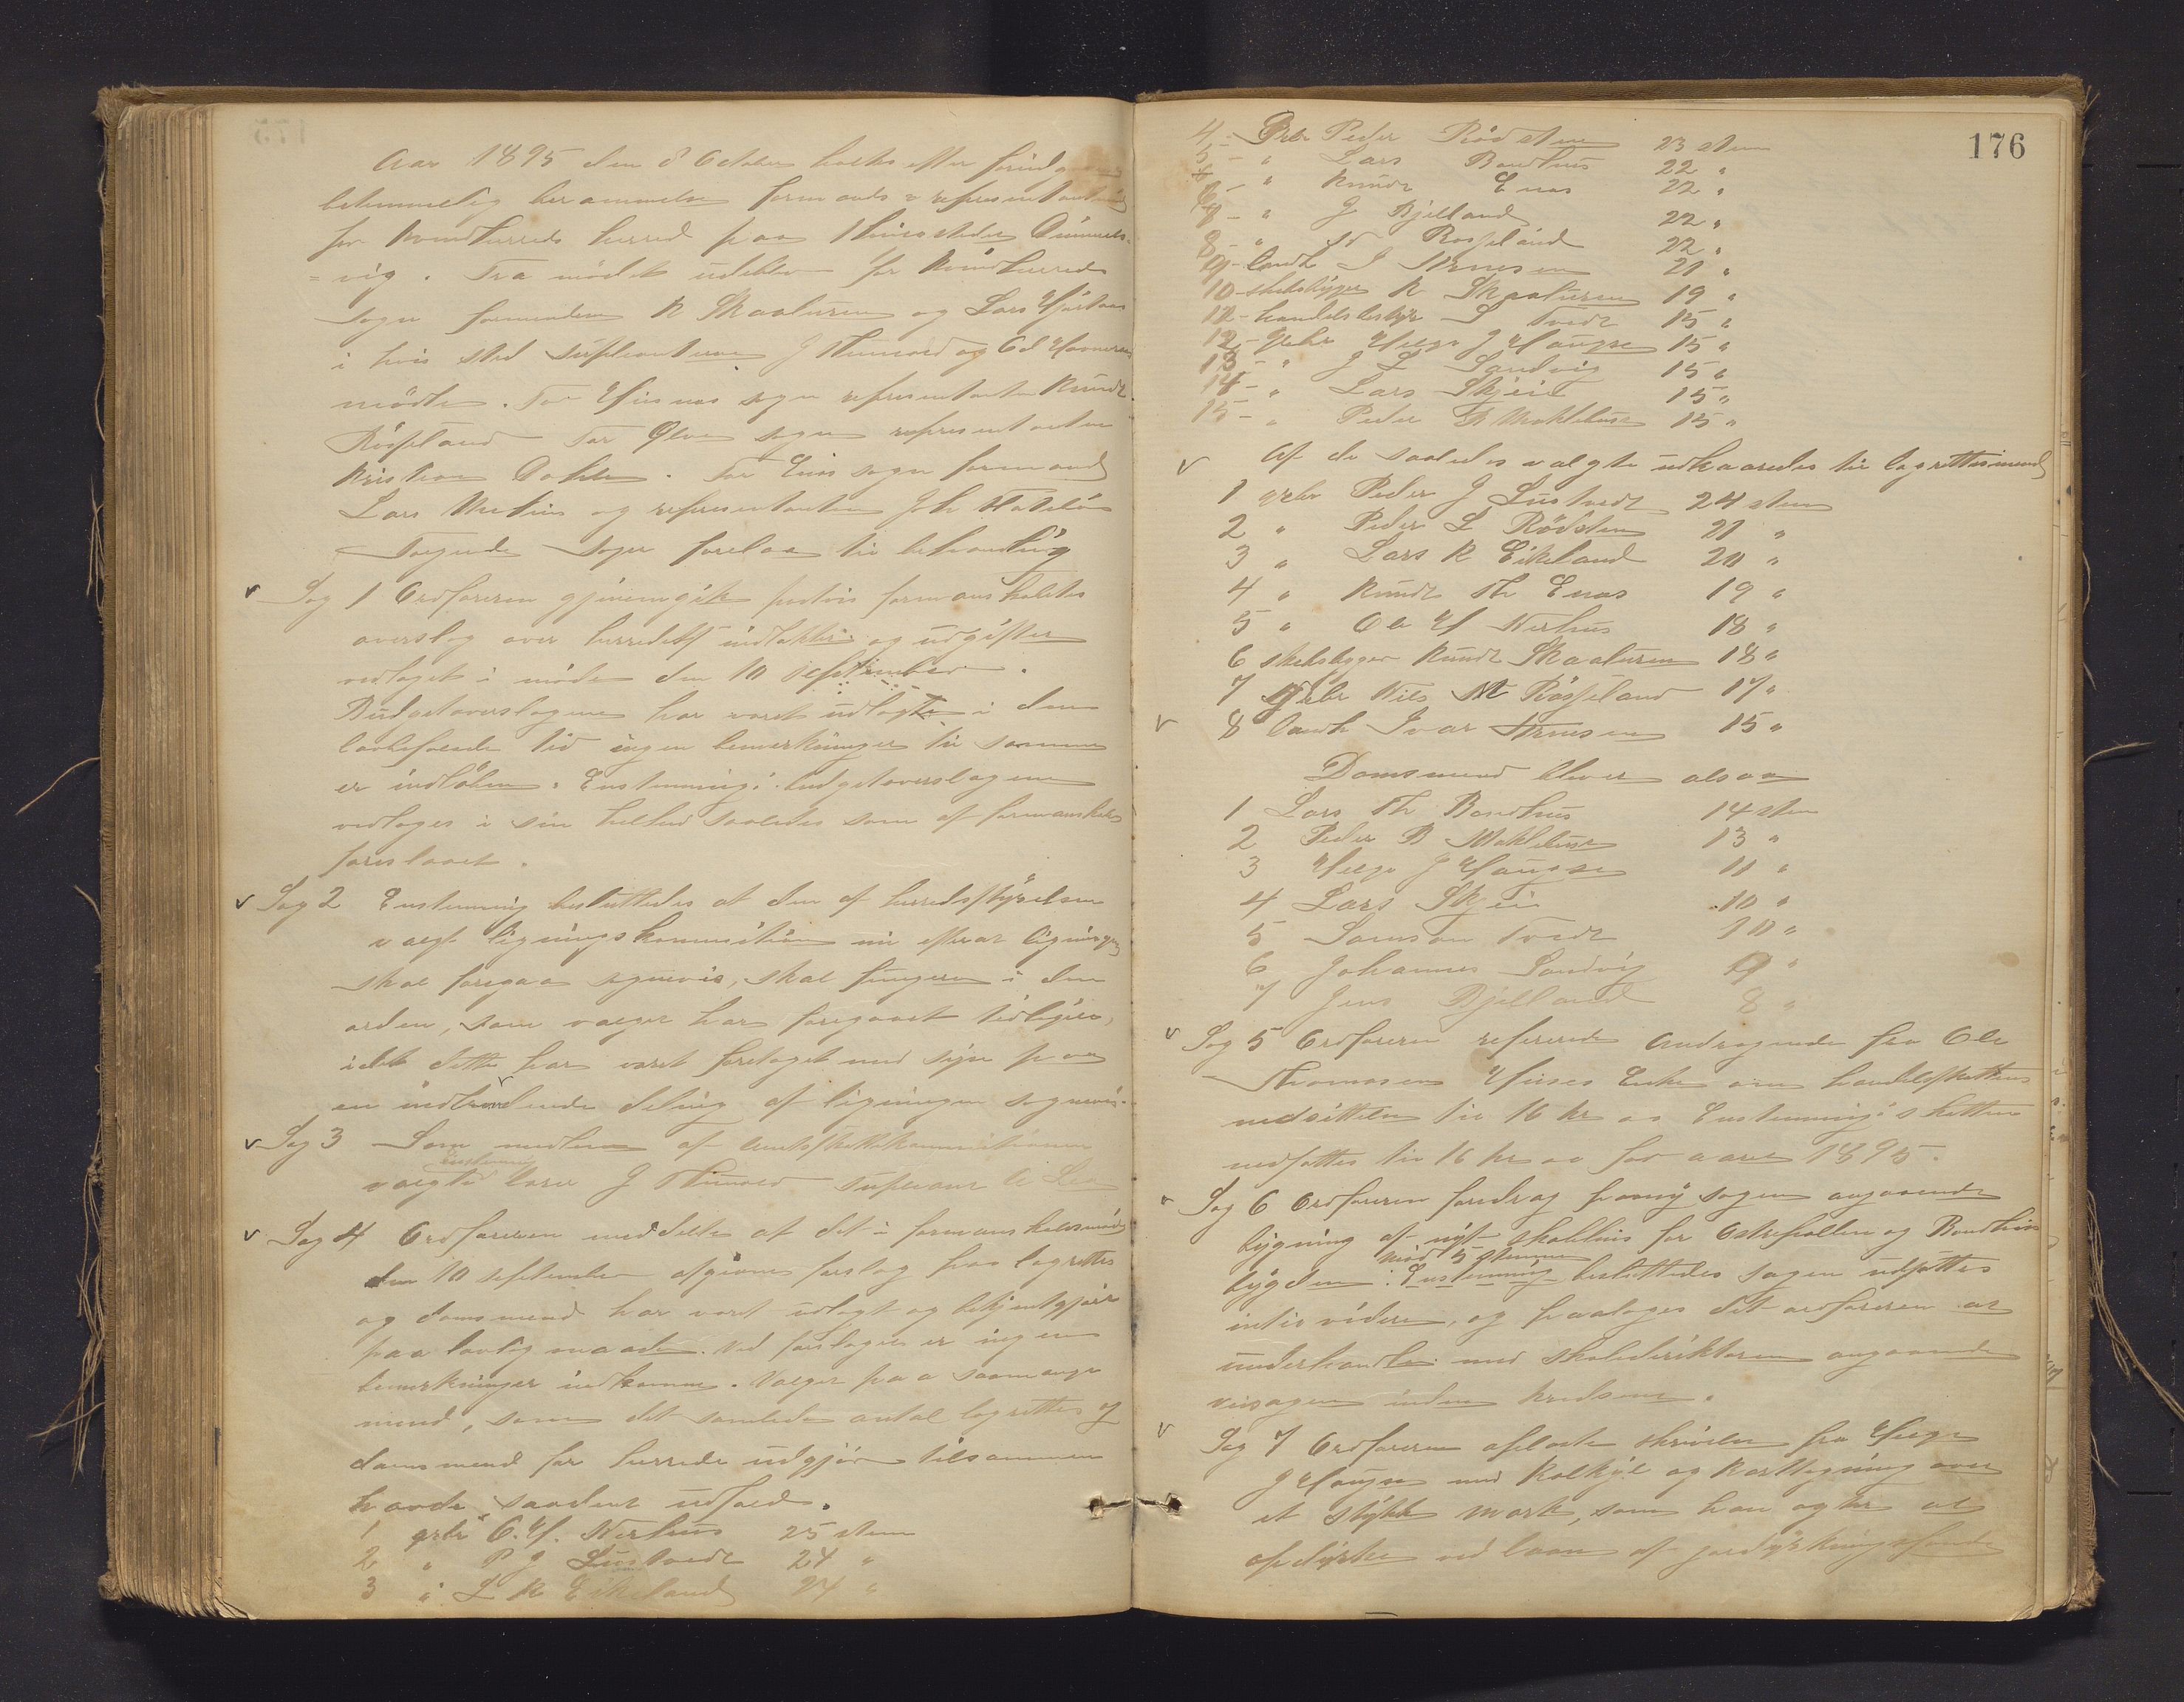 Aar 1895 den 8 October holdtes efter forudgaaende
betimmelig berammelse formands & representantmøde
for Kvindherreds herred paa Thinestedet Dimmels-
=vig. Fra mødet udeblev for Kvindherreds
sogn formændene K Skaaluren og Lars
i hvis sted suplanterne J Thuvold og Od
mødte. For Husnes sogn representanten Knudt
Røssland For Ølve sogn representanten
Kristian Dahle. For Enes sogn formand
Lars Mehus og representanten Joh Flatebø
Følgende sager forelaa til behandling
Sag 1 Ordføreren gjennemgik postvis formanskabets
overslag over herredets indtækter og udgifter
vedtaget i møde den 10 september.
Budgetoverslagene har været udlagte i den
lovbefalede tid ingen bemerkninger til samme
er indløben. Enstemmig: budgetoverslagene
vedtages i sin helhed saaledes som af formanskabet
foreslaaet.
Sag 2 Enstemmig besluttedes at den af herredsstyrelsen
valgt ligningskommission nu efterat ligningen
skal foregaa sognevis, skal fungere i den
orden, som valget har foregaaet tidligere,
idet dette har været foretaget med syn paa
en indtrædende deling af ligningen sognevis.
Sag 3 Som medlem af amtsskattekommissionen
enstemmig
valgtes lærer J Thuvold supleant
Sag 4 Ordføreren meddelte at det i formanskabsmøde
den 10 september afgivne forslag paa lagrettes
og domsmænd har været udlagt og bekjentgjort
paa lovlig maade. Ved forslaget er ingen
bemerkninger indkomne. Valget paa saamange
mænd, som det samlede antal lagrettes og
domsmænd for herredet udgjør tilsammen
havde saadant udfald.
1 grbr O. H. Nerhus 25 stem
2 " P J Lustvedt 24 "
3 " L K Eikeland 24 "
176
4 - Grbr Peder Rødsten 23 stem
5 - " Lars Bondhus 22 "
6 - " Knudt Enes 22 "
7 - " J Bjelland 22 "
8 - " N Røssland 22 "
9 - landh I Tennesen 21 "
10 - skibsbygger K Skaaluren 19 "
11 - handelsbestyr S Tvedt 15 "
12 - grbr Helge J Haugse 15 "
13 - " J L Sandvig 15 "
14 - " Lars Skjeie 15 "
15 - " Peder B Maklebust 15 "
Af de saaledes valgte udkaaredes til lagrettesmænd
1 grbr Peder J Lustvedt 24 stem
2 " Peder L Rødsten 21 "
3 " Lars K Eikeland 20 "
4 " Knudt Th Enes 19 "
5 " Ole H Nerhus 18 "
6 skibsbygger Knudt Skaaluren 18 "
7 grbr Nils M Røssland 17 "
8 landh Ivar Tennesen 15 "
Domsmænd bliver alsaa
1 Lars Th Bondhus 14 stem
2 Peder B Maklebust 13 "
3 Helge J Haugse 11 "
4 Lars Skjeie 10 "
5 Samson Tvedt 10 "
6 Johannes Sandvig 9 "
7 Jens Bjelland 8 "
Sag 5 Ordføreren refererede andragende fra Ole
Thomasen Huses Enke om handelsskattens
nedsættelse til 16 kr oo Enstemmig: skatten
nedsættes til 16 kr oo for aaret 1895.
Sag 6 Ordføreren foredrog paany sagen angaaende
bygning af nyt skolehus for Østrepollen og Bondhus
mod 5 stemmer
bygden. Enstemmig besluttedes sagen udsættes
indtil videre, og paalægges det ordføreren at
underhandle med skoledirektøren angaaende
veisagen inden kredsene.
Sag 7 Ordføreren oplæste skrivelse fra Helge
J Haugse med kalkyle og karttegning over
et stykke mark, som han agter at
opdyrke ved laan af jorddyrkningsfondet